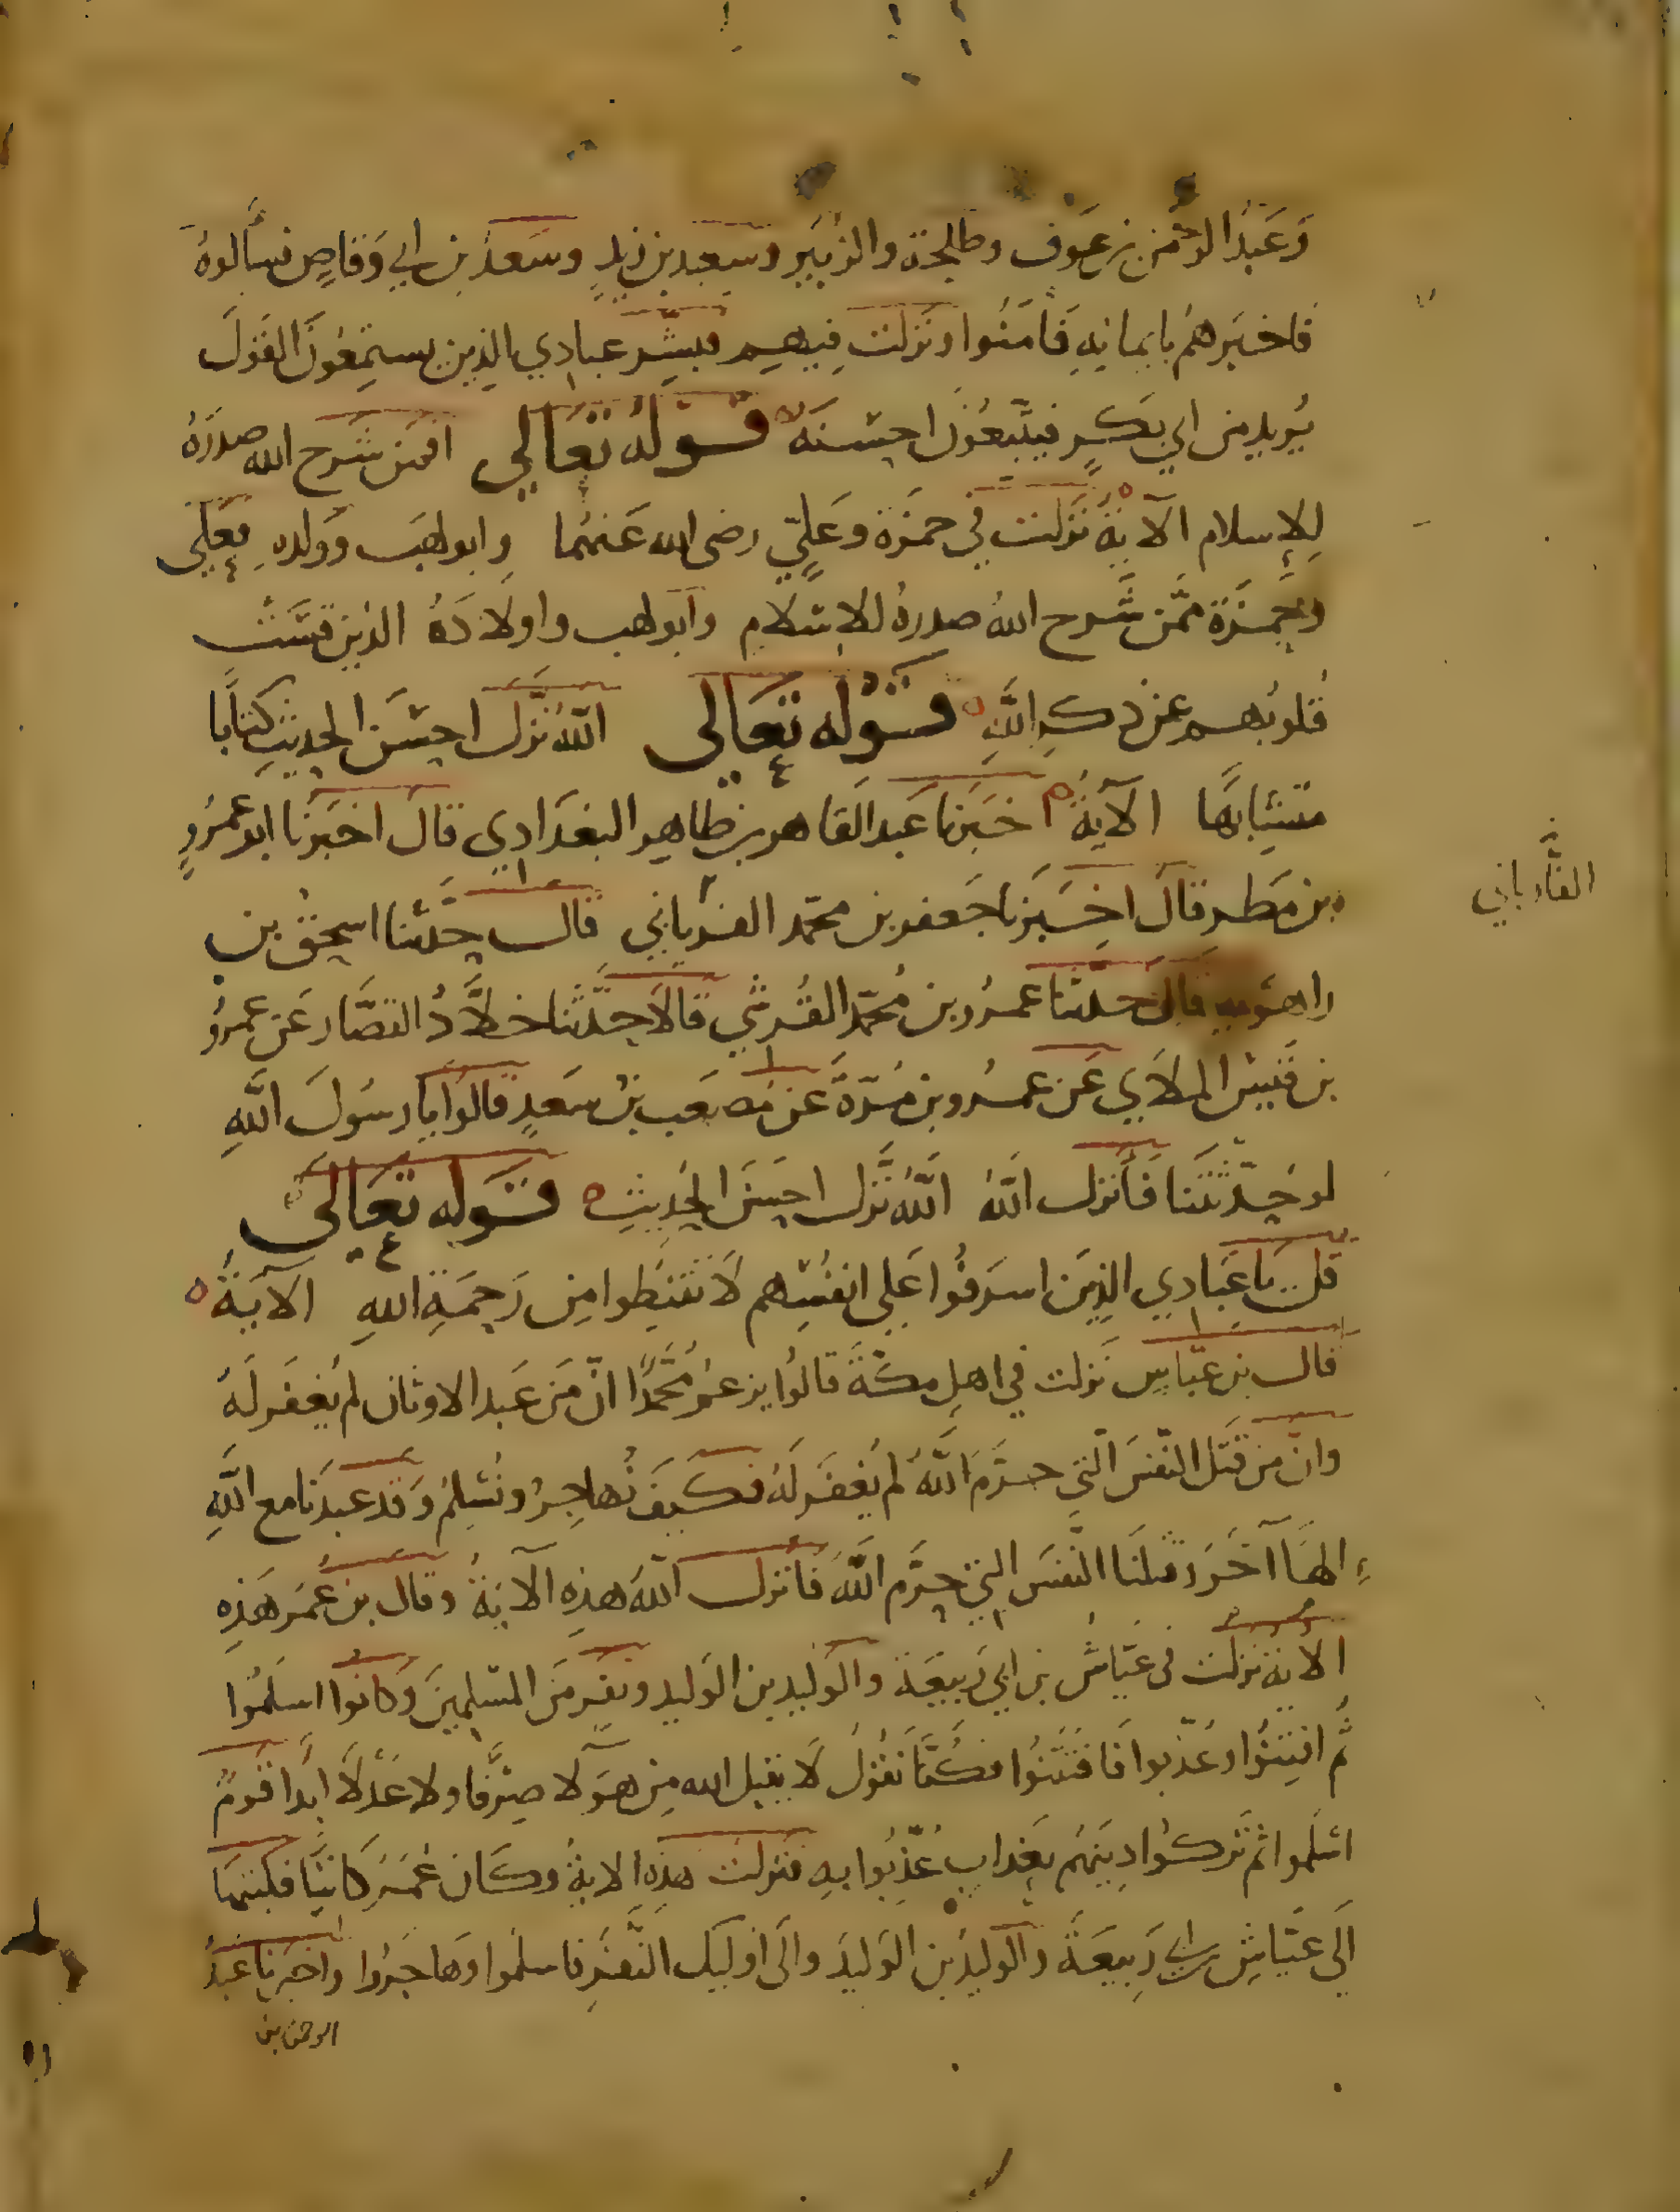 وَعَبْدُ الرحمٰن بن عَوْف وطلحة والزُبَيْر وسَعِيد بن زيدٍ وسَعْدُ بن ابي وَقاصٍ فسألوهُ
فاخبَرهُم بايمانِهِ فَآمَنُوا ونَزلت فِيهِم فبشِّر عبادِي الذِين يستمِعُونَ القَولَ
يُريد من ابي بَكرٍ فيتّبعُونَ احسنَهُ قوله تَعَالي افمَن شَرح الله صدرَهُ
لِلإسلام الآيةُ نَزلت في حمزَة وعَليّ رضى الله عَنهُما وابولهَب ووَلدهِ فعَلي
وحَمزَة ممَّن شَرح اللهُ صدرهُ للاسْلام وابولهب واولادهُ الذين قسَتْ
قُلوبُهم عن ذكرِ اللَّهِ قَوْله تعَالى اللهُ نزَّل احسَن الحديثِ كتابًا
متشابهًا الآيةُ اخبَرنا عَبد القاهر بن طاهر البغدَادِي قالَ اخبَرنا ابو عَمرٍو
بن مَطر قالَ اخبَرنا جَعفر بن محمّد الفريابي قال حدَّثنا اسحٰق بن
راهَوَيه قالَ حدثنا عمرُو بن مُحمّد القُرشي قالَ حدَّثنا خلَّادُ الصَّفَّار عَن عمرُو
بن قَيْس المُلاَي عَن عمرُو بن مُرّةَ عَن مُصعَب بن سَعدٍ قالوا يا رسُولَ اللَّهِ
لو حَدّثتَنا فَأنزل اللهُ اللهُ نزَّل احسَن الحَدِيثِ قَوله تعَالى
قل يا عِبَادي الذِين اسرَفُوا عَلى انفُسِهم لاَ تقنَطوا مِن رَحمَةِ اللهِ الآيَةُ
قال بن عبّاسٍ نَزلت في اهلِ مكّةَ قالُوا يزعُمُ مُحمَّدًا انّ مَن عَبد الاوثان لم يُغفَر لَهُ
وانّ من قَتل النّفسَ الّتي حرَّمَ اللَّهُ لم يُغفَر لَهُ فكيفَ نُهاجِرُ ونُسْلِمُ وَقد عبدنَا مع اللَّهِ
إلهًا آخَرَ وقتلنَا النَّفسَ التي حرَّم اللَّهُ فَانزل اللهُ هذِهِ الآيَةُ وقال بن عُمَر هَذِهِ
الآيَة نزلت في عَيّاشُ بن ابي رَبيعَة والوَليد بن الوَليد ونفَر مَن المسْلمِينَ وَكانوا اسلَمُوا
ثُم افتِتنُوا وعُذّبوا فَافتَتنُوا فكُنَّا نَقُولُ لاَ يقبل الله مِن هَولا صِرْفًا ولا عَدْلاً ابَدًا قَومٌ
اسْلَموا ثم تَركُوا دِينَهُم بعَذابٍ عُذِّبُوا بِهِ فنَزلت هذِهِ الايةُ وكَان عُمَرُ كَاتِبًا فكَتبَهَا
اَلَى عَيّاشِ بن ابي رَبِيعَةَ والوليدُ بن الوَليدَ والَى اوليك النَّفَرِ فاسلمُوا وهَاجَرُوا واخبَرنا عَبدُ
الرحمٰن بن
الفَّارياني